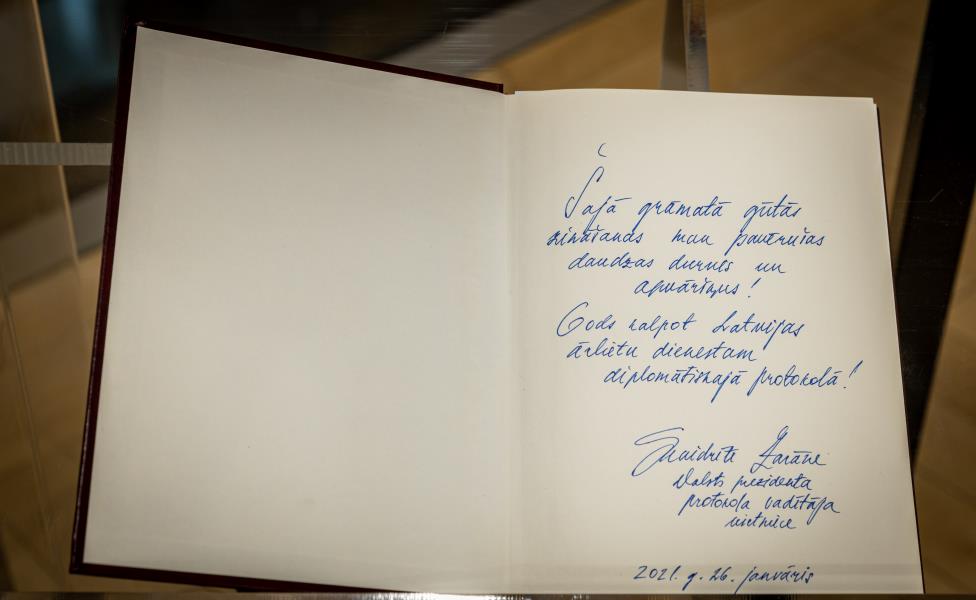 Šajā grāmatā gūtās
zināšanas man pavērušas
daudzas durvis un
apvāršņus!
Gods kalpot Latvijas
ārlietu dienestam
diplomātiskajā protokolā!
Skaidrīte Zarāne
Valsts prezidenta
protokola vadītāja
vietniece
2021. g. 26. janvāris